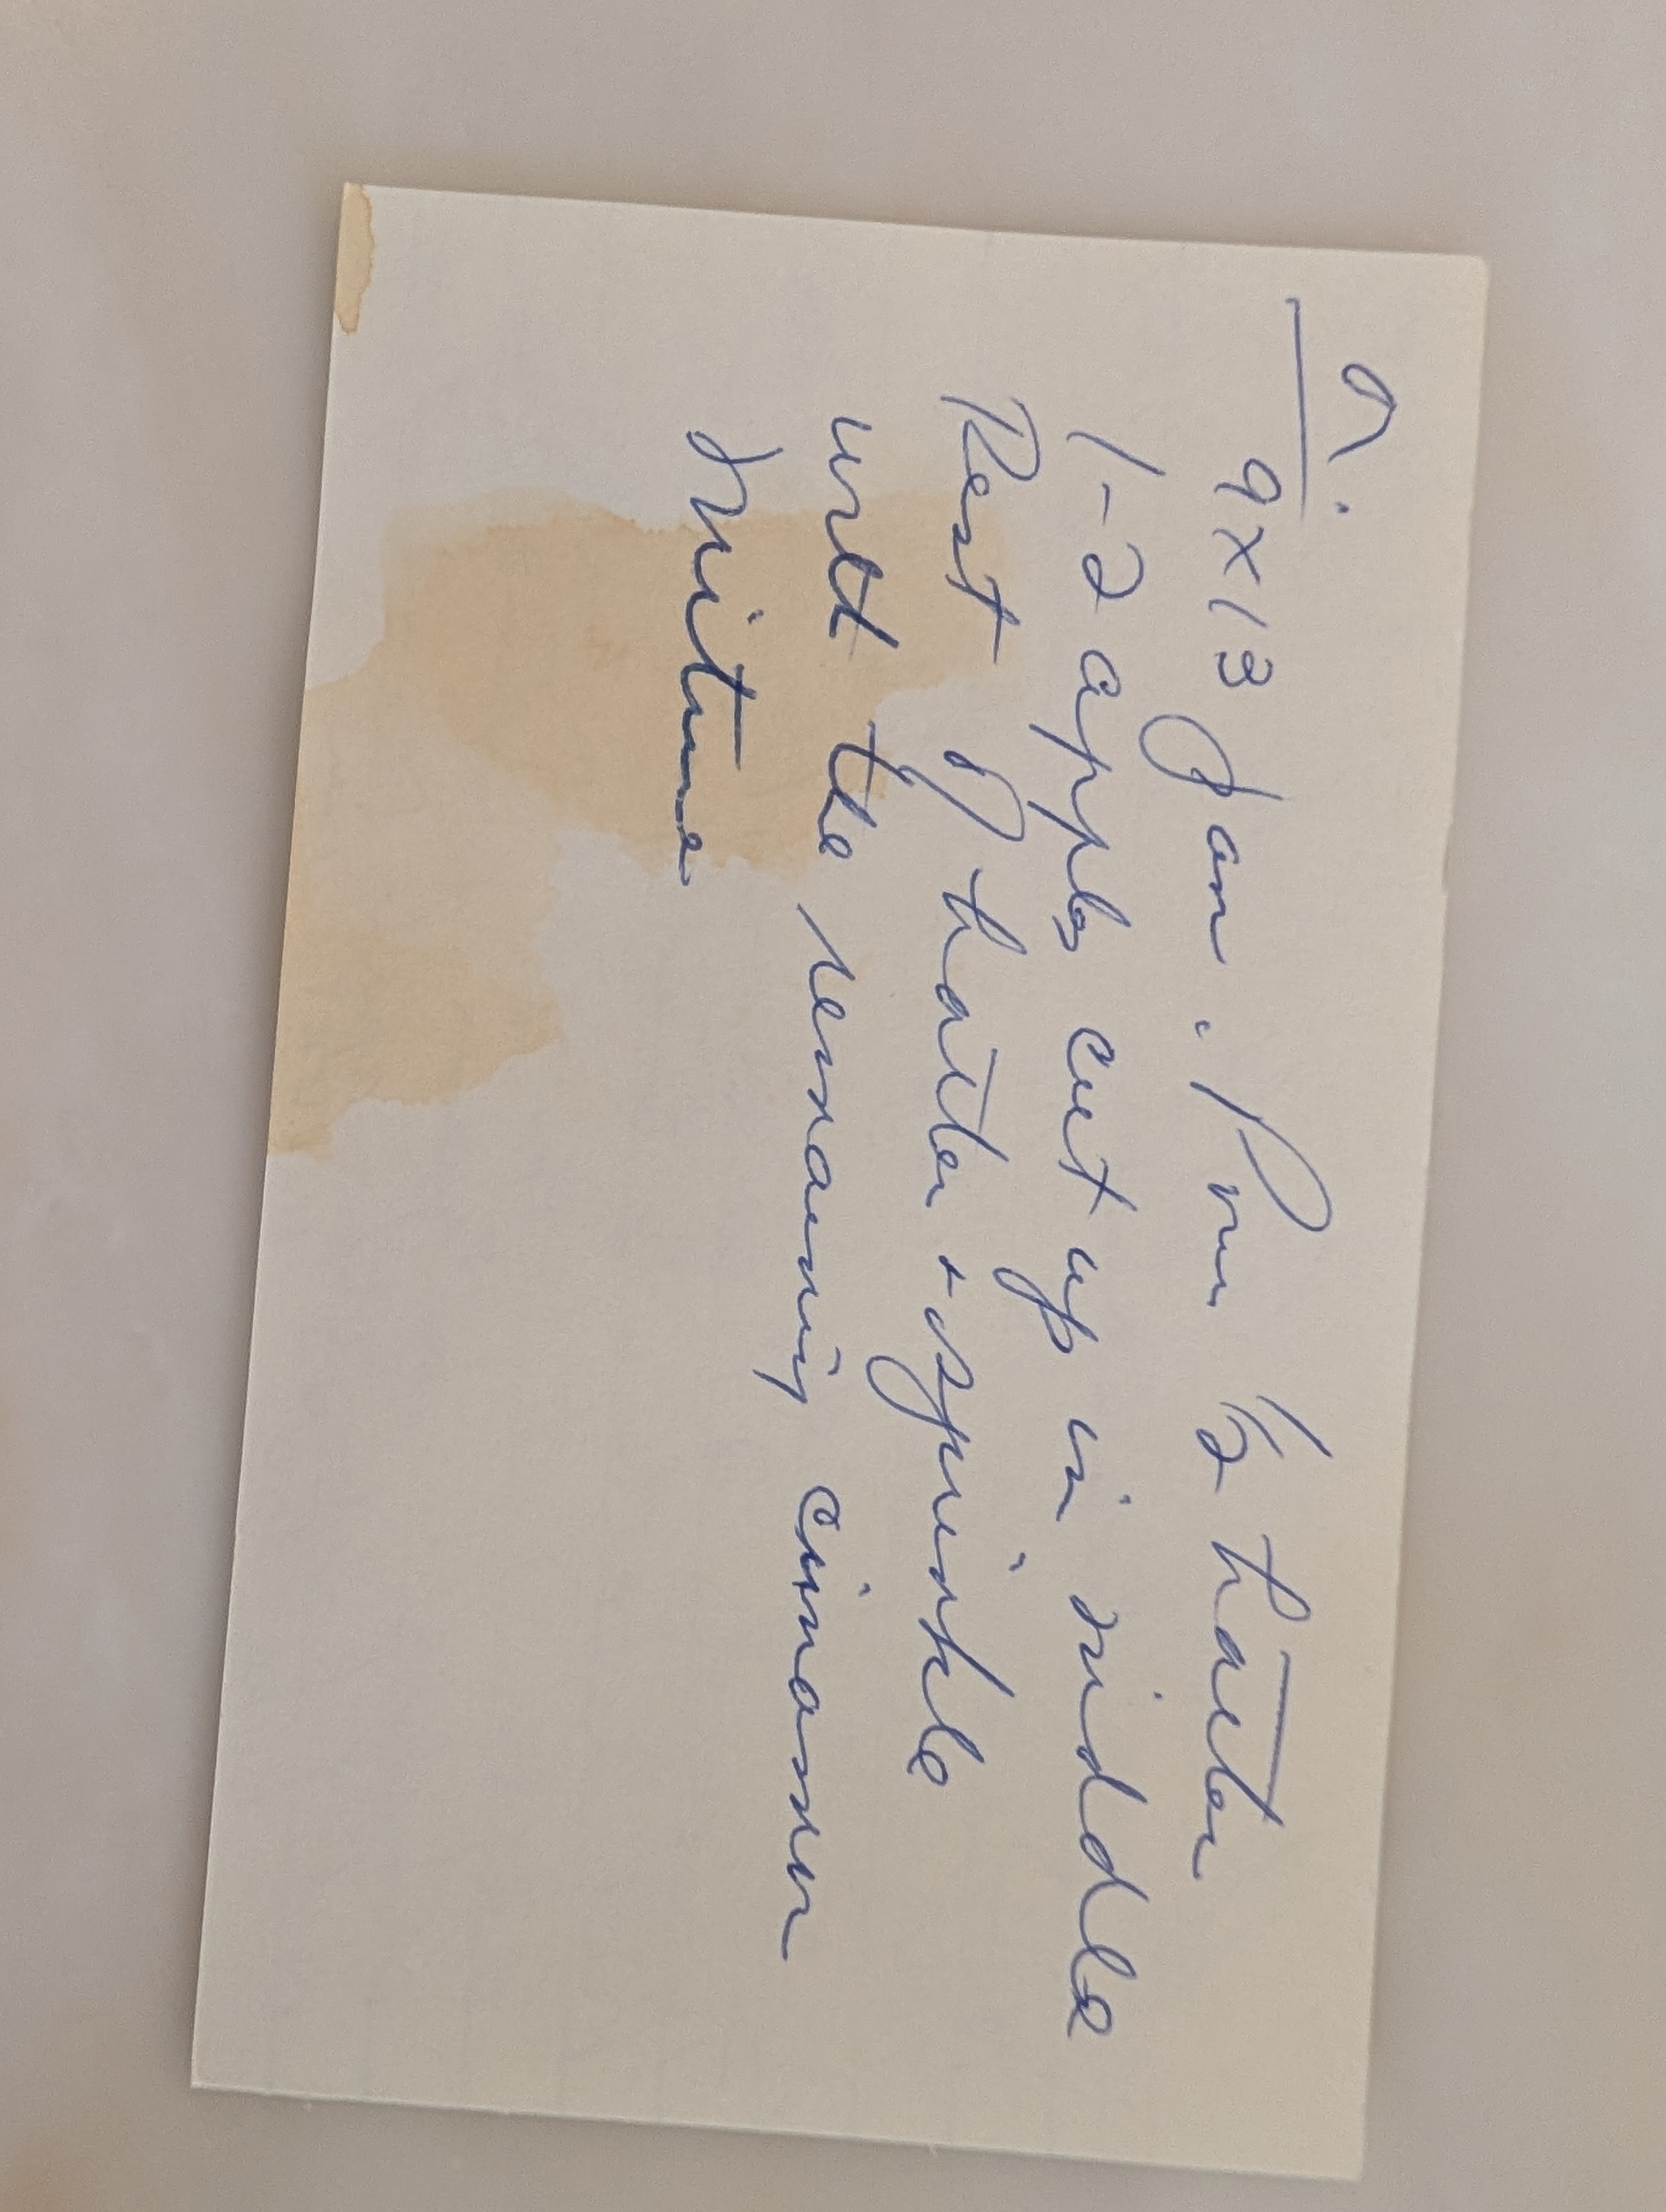 2.
9x13 pan. Pour 1/2 batter
1-2 apples cut up in middle
Rest of batter + sprinkle
with the remaining cinnamon
mixture